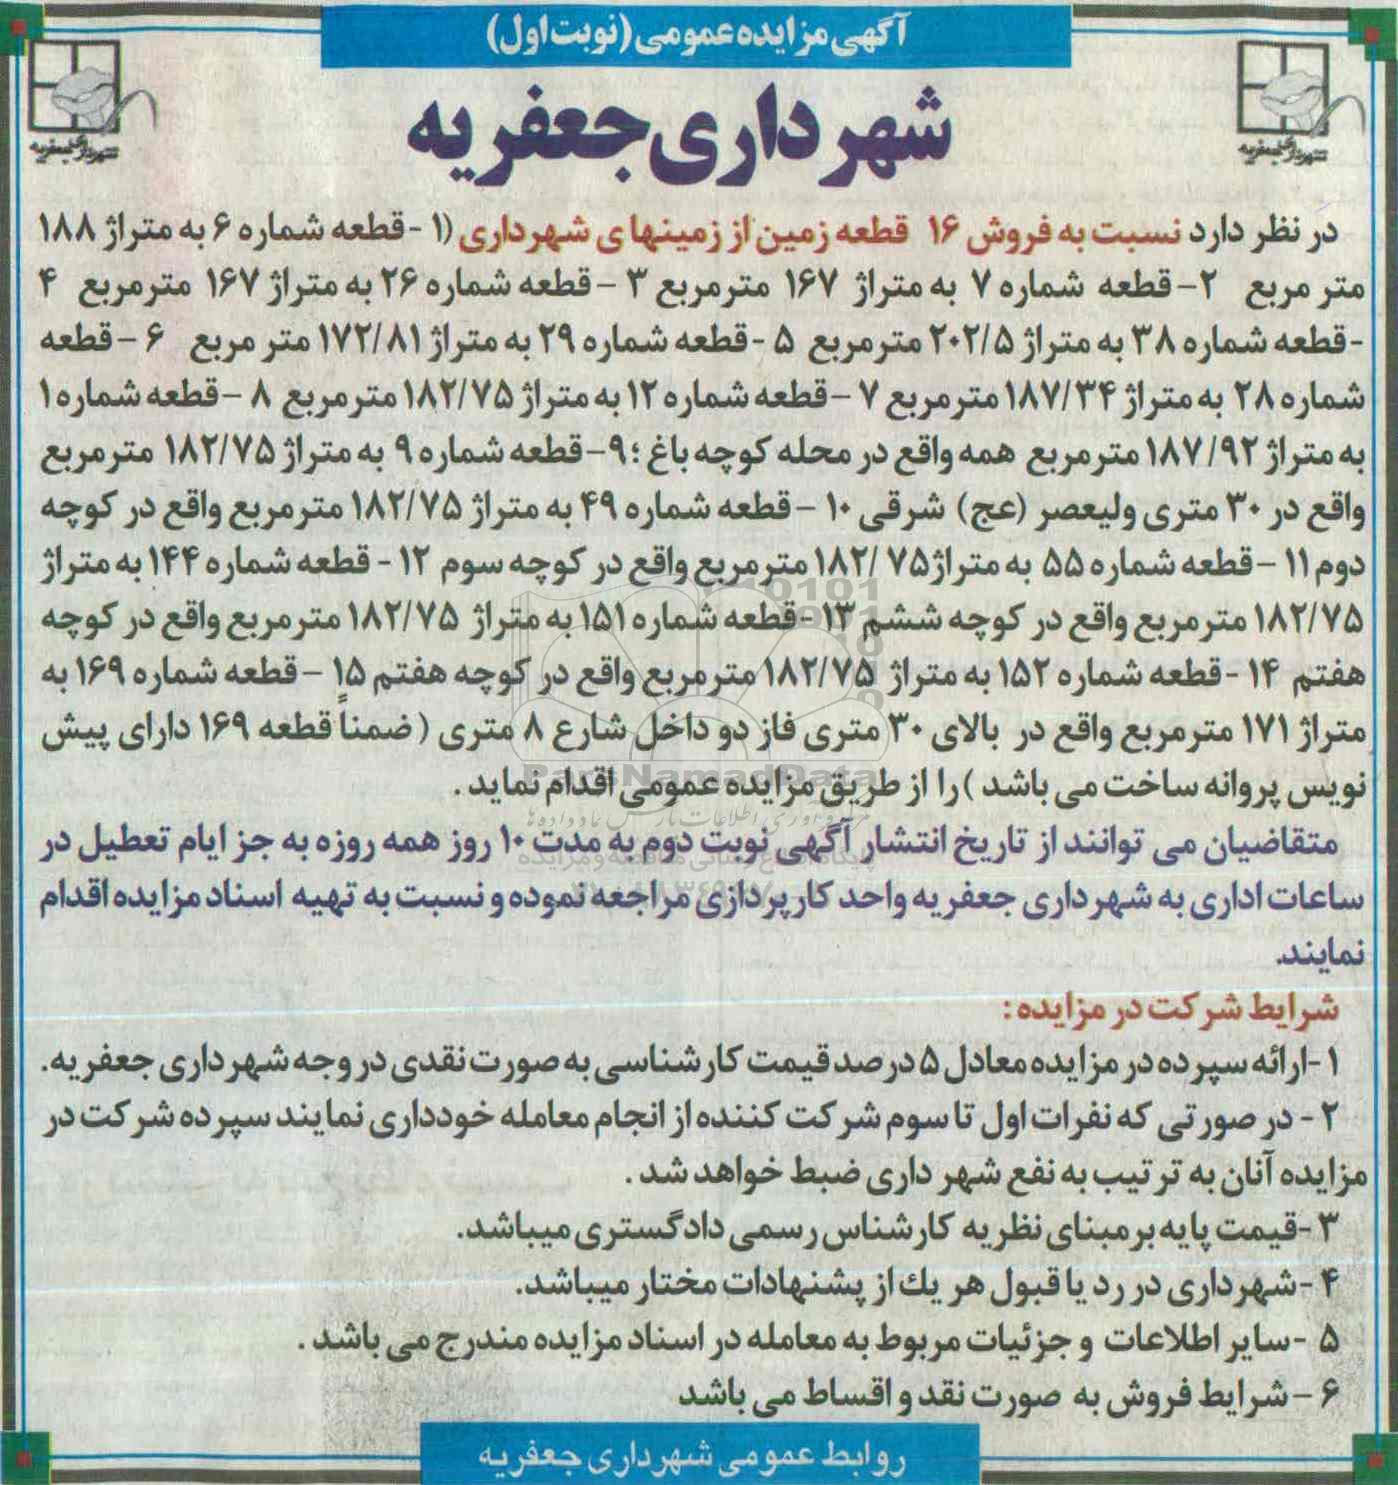 آگهی مزایده عمومی (نوبت اول)
شهرداری جعفریه
شهرداری جعفریه
شهرداری جعفریه
در نظر دارد نسبت به فروش ۱۶ قطعه زمین از زمینها ی شهرداری (۱ -قطعه شماره ۶ به متراژ ۱۸۸
متر مربع ۲- قطعه شماره ۷ به متراژ ۱۶۷ مترمربع ۳ - قطعه شماره ۲۶ به متراژ ۱۶۷ مترمربع ۴
-قطعه شماره ۳۸ به متراژ ۲۰۲/۵ مترمربع ۵ - قطعه شماره ۲۹ به متراژ ۱۷۲/۸۱ متر مربع ۶ - قطعه
شماره ۲۸ به متراژ ۱۸۷/۳۴ مترمربع ۷ - قطعه شماره ۱۲ به متراژ ۱۸۲/۷۵ مترمربع ۸ - قطعه شماره ۱
به متراژ ۱۸۷/۹۲ مترمربع همه واقع در محله کوچه باغ ؛ ۹- قطعه شماره ۹ به متراژ ۱۸۲/۷۵ مترمربع
واقع در ۳۰ متری ولیعصر (عج) شرقی ۱۰ - قطعه شماره ۴۹ به متراژ ۱۸۲/۷۵ مترمربع واقع در کوچه
دوم ۱۱ - قطعه شماره ۵۵ به متراژ ۱۸۲/۷۵ مترمربع واقع در کوچه سوم ۱۲ - قطعه شماره ۱۴۴ به متراژ
۱۸۲/۷۵ مترمربع واقع در کوچه ششم ۱۳ - قطعه شماره ۱۵۱ به متراژ ۱۸۲/۷۵ مترمربع واقع در کوچه
هفتم ۱۴ - قطعه شماره ۱۵۲ به متراژ ۱۸۲/۷۵ مترمربع واقع در کوچه هفتم ۱۵ - قطعه شماره ۱۶۹ به
متراژ ۱۷۱ مترمربع واقع در بالای ۳۰ متری فاز دو داخل شارع ۸ متری ( ضمناً قطعه ۱۶۹ دارای پیش
نویس پروانه ساخت می باشد ) را از طریق مزایده عمومی اقدام نماید .
متقاضیان می توانند از تاریخ انتشار آگهی نوبت دوم به مدت ۱۰ روز همه روزه به جز ایام تعطیل در
ساعات اداری به شهرداری جعفریه واحد کارپردازی مراجعه نموده و نسبت به تهیه اسناد مزایده اقدام
نمایند.
شرایط شرکت در مزایده :
۱ -ارائه سپرده در مزایده معادل ۵ درصد قیمت کارشناسی به صورت نقدی در وجه شهرداری جعفریه.
۲ - در صورتی که نفرات اول تا سوم شرکت کننده از انجام معامله خودداری نمایند سپرده شرکت در
مزایده آنان به ترتیب به نفع شهر داری ضبط خواهد شد .
۳ -قیمت پایه بر مبنای نظریه کارشناس رسمی دادگستری میباشد.
۴ -شهرداری در رد یا قبول هر یك از پشنهادات مختار میباشد.
۵ -سایر اطلاعات و جزئیات مربوط به معامله در اسناد مزایده مندرج می باشد .
۶ - شرایط فروش به صورت نقد و اقساط می باشد
روابط عمومی شهرداری جعفریه
ParsNamadData